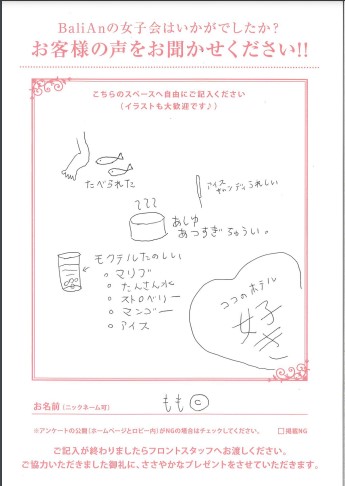 BaliAnの女子会はいかがでしたか?
お客様の声をお聞かせください!!
こちらのスペースへ自由にご記入ください
(イラストも大歓迎です♪)
たべられた
アイス
キャンディうれしい
あしゆ
あつすぎちゅうい。
モクテルたのしい
。マリブ
。たんさん水
。ストロベリー
。マンゴー
。アイス
ココのホテル
好き
お名前(ニックネーム可)
もも©
※アンケートの公開(ホームページとロビー内)がNGの場合はチェックしてください。
□掲載NG
ご記入が終わりましたらフロントスタッフへお渡しください。
ご協力いただきました御礼に、ささやかなプレゼントをさせていただきます。